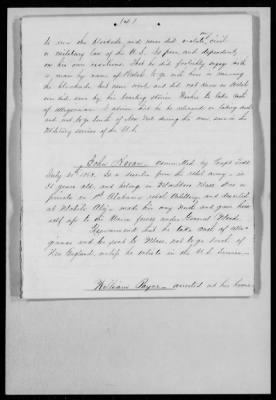 (4)
to run the blockade and never did violate civil
or military law of the U.S. Is poor and dependent
on his own exertions. That he did foolishly engage with
a man by name of Walsh to go with him in running
the blockade but never went and did not know on Walsh
was bad, over by his boasting stories. Wishes to take oath
of allegiance. I advise that he be released on taking oath
and not to go South of New York during the war save in the
Military service of the U.S.
John Horan committed by Capt Todd
July 30th 1862. Is a deserter from the rebel army - is
31 years old, and belongs in Mass. Was a
private in 1st Alabama rebel Artillery and deserted
at Mobile Ala. made his way North and gave him
self up to the Union forces under General
Recommend that he take oath of alle-
giance and be sent to Mass. not to go South of
New England unless he enlists in the U.S. Service.
William Payer arrested at his home